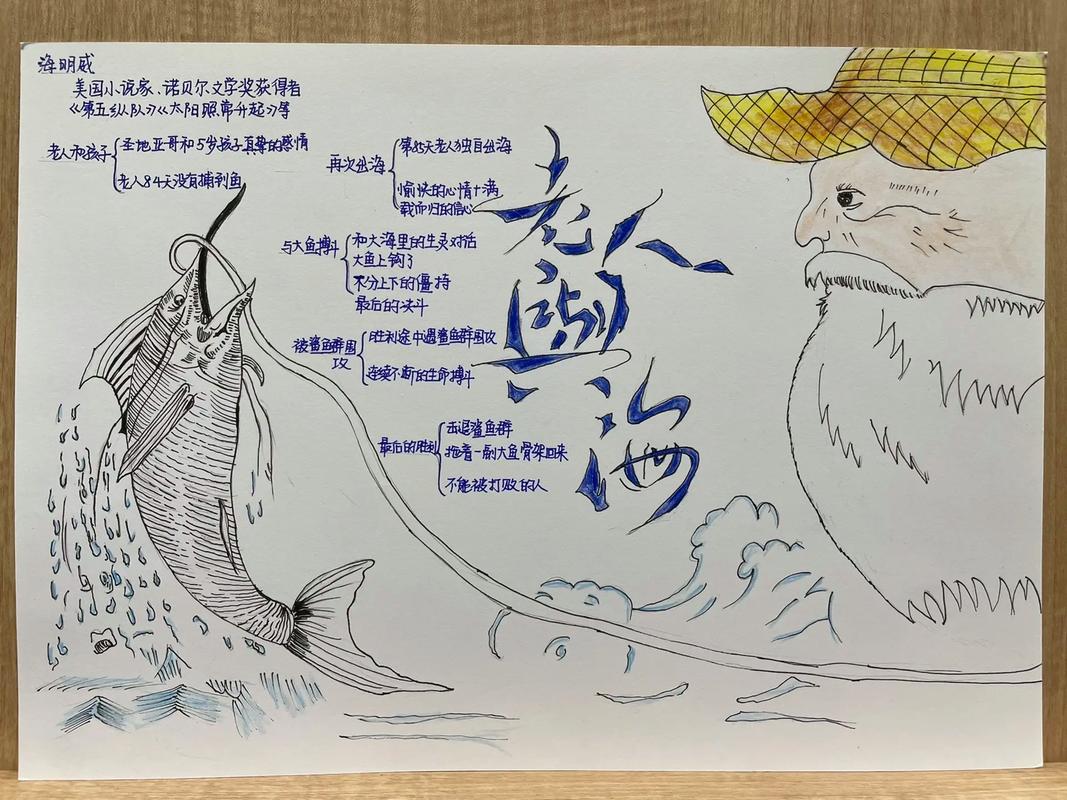 海明威
美国小说家、诺贝尔文学奖获得者
《第五纵队》《太阳照常升起》等
老人和孩子
圣地亚哥和5岁孩子真挚的感情
老人84天没有捕到鱼
再次出海
第85天老人独自出海
愉快的心情+满
载而归的信心
与大鱼搏斗
和大海里的生灵对话
大鱼上钩了
不分上下的僵持
最后的决斗
被鲨鱼群围
攻
胜利途中遇鲨鱼群围攻
连续不断的生命搏斗
最后的胜利
击退鲨鱼群
拖着一副大鱼骨架回来
不能被打败的人
老人
與
海